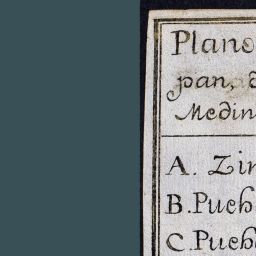 Plano
pan,
Medin
A. Zin
B. Pueb
C. Pueb